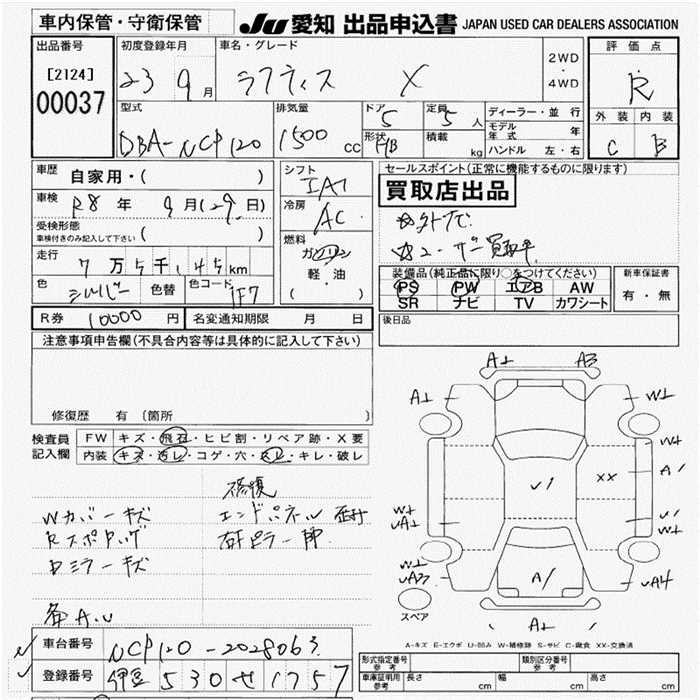 車内保管・守衛保管
JU 愛知 出品申込書 JAPAN USED CAR DEALERS ASSOCIATION
出品番号
[2124]
00037
初度登録年月
23 9月
車名・グレード
ラクティス X
2WD・4WD
評価点
R
外装 内装
C B
型式
DBA-NCP120
排気量
1500 cc
ドア 5
形状 HB
定員 5人
積載 kg
ディーラー・並行
モデル年式 年
ハンドル 左・右
車歴 自家用・( )
車検 R8年 9月(29日)
受検形態
車検付きのみ記入して下さい ( )
走行 7万5千145km
色 シルバー 色替 色コード 1F7
シフト IAT
冷房 AC
燃料
ガソリン
軽・油
( )
セールスポイント(正常に機能するものに限ります)
買取店出品
☆外ナビ
☆ユーザー買取車
装備品(純正品に限り○をつけてください)
PS PW エアB AW
SR ナビ TV カワシート
新車保証書
有・無
R券 10000円 名変通知期限 月 日
後日品
注意事項申告欄(不具合内容等は具体的に記入して下さい)
修復歴 有 〔箇所 〕
検査員記入欄
FW キズ・飛石・ヒビ割・リペア跡・X要
内装 キズ・汚レ・コゲ・穴・スレ・キレ・破レ
Wカバーキズ
Dミラーキズ
各A.U
修復
エンドパネル
A1 A3
A1 W1
W1
A1
XX
U1
W1
UA1
U1
W1
W1
UA3
A1
UA4
A1
スペア
A-キズ E-エクボ U-凹み W-補修跡 S-サビ C-腐食 XX-交換済
車台番号 NCP120-2028063
登録番号 伊豆 530 せ 1757
形式指定番号 参考
類別区分番号 参考
車庫証明用 参考
長さ cm 幅 cm 高さ cm